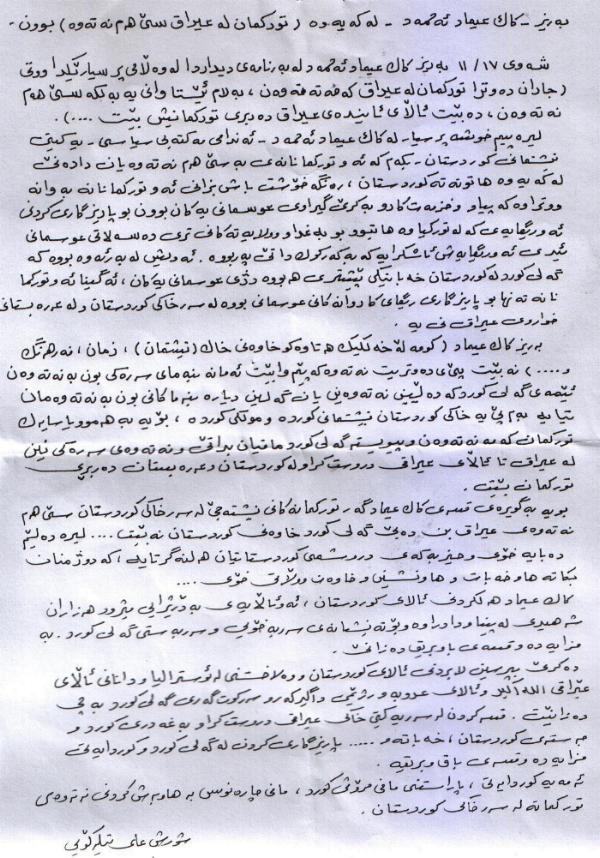 بەڕێز - کاک عیماد ئەحمەد - لەکەیەوە (تورکمان لە عیراق سێ هەم نەتەوە) بوون -
شەوی ١٧/ ١١ بەڕێز کاک عیماد ئەحمەد لە بەرنامەی دیداردا لە وەڵامی پرسیارێکدا ووتی
(جاران دەوترا تورکمان لە عیراق کەمە نەتەوەن ، بەلام ئێستا وانی یە بەلکە سێ هەم
نەتەوەن ، دەبێت ئاڵای ئایندەی عیراق دەبری تورکمانیش بێت ....) .
لیرە پیم خوشە پرسیار لە کاک عیماد ئەحمەد - ئەندامی مەکتەبی سیاسی - یەکێتی
نیشتمانی کوردستان - بکەم کە ئەو تورکمانانەی بە سێ هەم نەتەوەیان دادەنێ
لەکەیەوە هاتونەتە کوردستان ، رەنگە خۆشت باش بزانی ئەو تورکمانانە بەوانە
ووتراوە کە پیاو و خزمەتکار و بەکرێ گیراوی عوسمانی یەکان بوون بو پاریزگاری کردنی
ئەو رێگایەی کە لە تورکیاوە هاتبوو بو بەغدا و وولایەتەکانی تری دەسەلاتی عوسمانی
ئیدی ئەو رێگایەش ئاشکرایە کە بە کەرکوک دا تێ پەریوە . ئەوەش لەبەر ئەوە بووە کە
گەلی کورد لە کوردستان خەباتیکی نیشتمانی هەبووە دژی عوسمانی یەکان ، ئەگینا ئەو تورکما
نانە تەنها بو پاریزگاری رێگای کاروانەکانی عوسمانی بووە لە سەر خاکی کوردستان و لە عەرەبستانی
خواروی عیراق نی یە .
بەریز کاک عیماد (کومەلە خەلکیک هەتاوەکو خاوەنی خاک (نیشتمان) ، زمان ، فەرهەنگ
و ....) نەبێت پێی دەوتریت نەتەوە کە پێم وابێت ئەمانە بنەمای سەرەکی بون بە نەتەوەن
ئێمەی گەلی کورد کە دەلیێن نەتەوەین یان گەلین دیارە بنەماکانی بون بە نەتەوەمان
تیایە . بەم پێ یە خاکی کوردستان نیشتمانی کوردە و موڵکی کوردە ، بۆیە بە هەموو یاسایەک
تورکمان کەمە نەتەوەن و پیویستە گەلی کورد مافیان بداتێ و نەتەوەی سەرەکی نین
لە عیراق تا ئالای عیراق دروست کراو لە کوردستان و عەرەبستان دەبری
تورکمان بێت .
بویە بە گویرەی قسەی کاک عیماد گەر تورکمانەکانی نیشتەجێ لە سەر خاکی کوردستان سێ هەم
نەتەوەی عیراق بن دەبێ گەلی کورد خاوەنی کوردستان نەبێت .... لیرە دەلیم
دەبایە خۆی و حیزبەکەی دروشمی کوردستانیان هەلنەگرتایە ، کە دوژمنان
بکاتە هاوخەبات و هاونیشتمانی و خاوەن وولاتی خۆی ....
کاک عیماد هەلکردنی ئالای کوردستان ، ئەو ئالایەی بە درێژایی مێژوو هەزاران
شەهیدی لە پێناودا دراوە و بۆتە نیشانەی سەربەخۆیی و سەربەستی گەلی کورد . بە
مزایەدە و قسەی بابریق دەزانێ .
دەکرێ بپرسین لابردنی ئالای کوردستان و دەلاخستنی لە ئوسترالیا و دانانی ئاڵای
عێراقی الله أكبر و ئالای عروبە و رژێمی داگیرکەر و سەرکوت کەری گەلی کورد بە چی
دەزانێت . قسەکردن لە سەر یەکێتی خاکی عیراقی دروست کراو بە غەدری کورد و
جەستەی کوردستان ، خەباتە و ..... پاریزگاری کردن لە گەلی کورد و کوردایەتی
مزایەدە و قسەی باق و بریقە .
ئەمەیە کوردایەتی ، پاراستنی مافی مرۆڤی کورد ، مافی چارەنوسی بە هاوبەش کردنی نەتەوەی
تورکمانە لە سەر خاکی کوردستان .
شورش علی